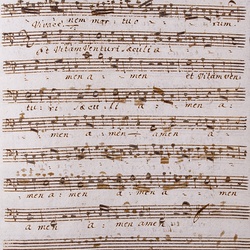 Vivace. nem mortuo rum.
et Vitam Venturi sæculi a
men a men et Vitam Ven
turi sæculi a men
men a men a men
men a men a men
a men a men amen